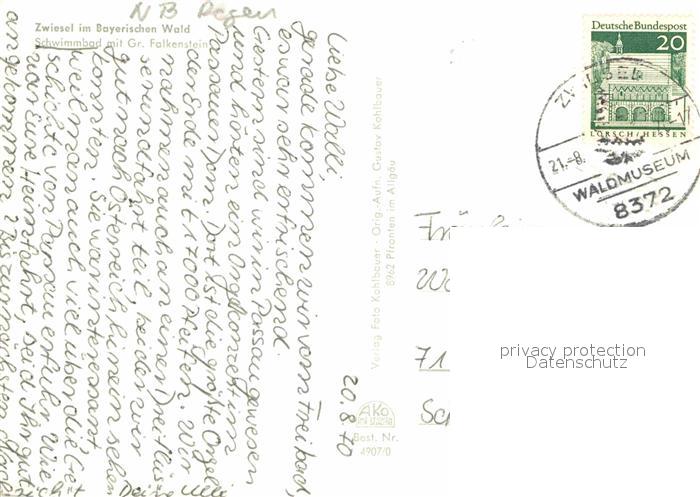 NB Regen
Zwiesel im Bayerischen Wald
Schwimmbad mit Gr. Falkenstein
Deutsche Bundespost
20
LORSCH/HESSEN
ZWIESEL
21.-8.
WALDMUSEUM
8372
20.8.70
Liebe Walli,
gerade kommen wir vom Freibad,
es war sehr erfrischend.
Gestern sind wir in Passau gewesen
und hörten ein Orgelkonzert im
Passauer Dom. Dort ist die größte Orgel
der Erde mit 17000 Pfeifen. Wir
nahmen auch an einer Dreiflüs-
serundfahrt teil, bei der wir
gut nach Österreich hinein sehen
konnten. Sie war interessant
weil man auch viel über die Ge-
schichte von Passau erfuhr. Wie
war Eure Heimfahrt, seid Ihr gut
angekommen? Bis zum nächsten
Deine Ulli
Verlag Foto Kohlbauer · Orig.-Aufn. Gustav Kohlbauer
8962 Pfronten im Allgäu
AKO
Best. Nr.
4907/0
71
privacy protection
Datenschutz